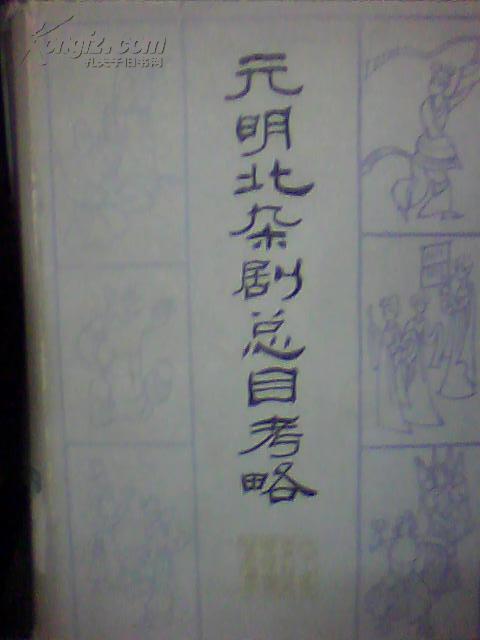 Kongfz.com
孔夫子旧书网
元明北杂剧总目考略